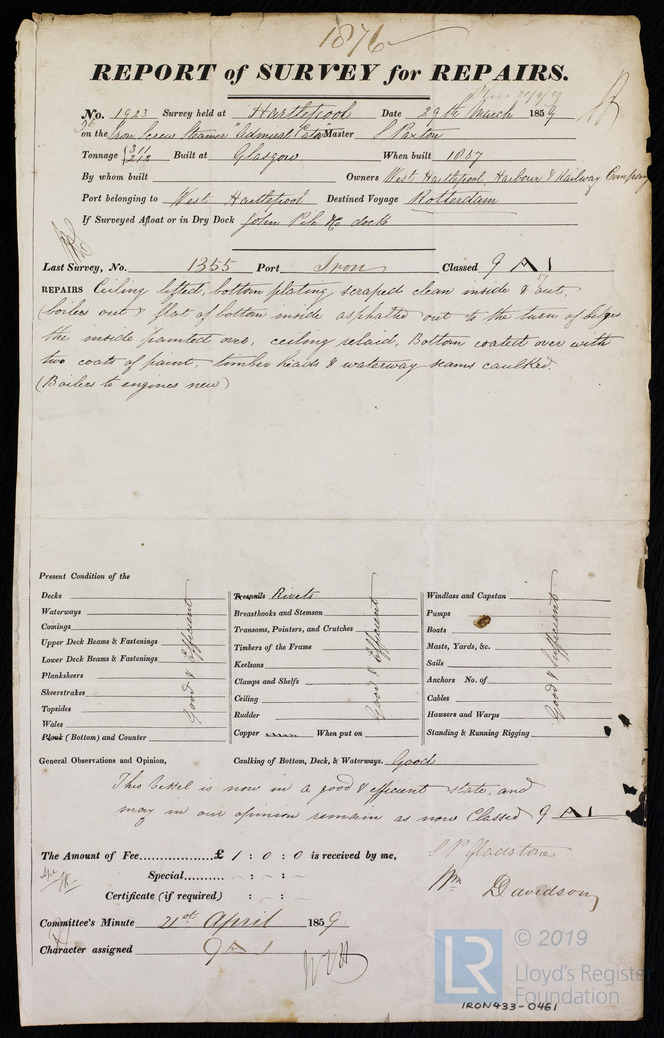 1876
REPORT of SURVEY for REPAIRS.
No. 1923 Survey held at Hartlepool Date 29th March 1859
on the Iron Screw Steamer "Admiral Cator" Master S Paxton
Tonnage {311 212 Built at Glasgow When built 1857
By whom built Owners West Hartlepool Harbour & Railway Company
Port belonging to West Hartlepool Destined Voyage Rotterdam
If Surveyed Afloat or in Dry Dock John Pile & Co dock
Last Survey, No. 1355 Port Iron Classed 9 A 1
REPAIRS Ceiling lifted, bottom plating scraped clean inside & out,
(boiler out & flat of bottom inside asphalted out to the turn of bilges
the inside painted over, ceiling relaid, Bottom coated over with
two coats of paint, timber heads & waterway seams caulked.
(Boilers to engines new)
Present Condition of the
Decks
Waterways
Comings
Upper Deck Beams & Fastenings
Lower Deck Beams & Fastenings
Planksheers
Sheerstrakes
Topsides
Wales
Plank (Bottom) and Counter
Good & Efficient
Treenails Rivets
Breasthooks and Stemson
Transoms, Pointers, and Crutches
Timbers of the Frame
Keelsons
Clamps and Shelfs
Ceiling
Rudder
Copper When put on
Good & Efficient
Windlass and Capstan
Pumps
Boats
Masts, Yards, &c.
Sails
Anchors No. of
Cables
Hawsers and Warps
Standing & Running Rigging
Good & Sufficient
General Observations and Opinion, Caulking of Bottom, Deck, & Waterways. Good
This Vessel is now in a good & efficient state, and
may in our opinion remain as now Classed 9 A 1
The Amount of Fee................£ 1 : 0 : 0 is received by me,
Special..........- : - : -
Certificate (if required) : - : -
Gladstone
Wm Davidson
Committee's Minute 21st April 1859
Character assigned 9 A 1
LR
© 2019
Lloyd's Register
Foundation
IRON433-0461